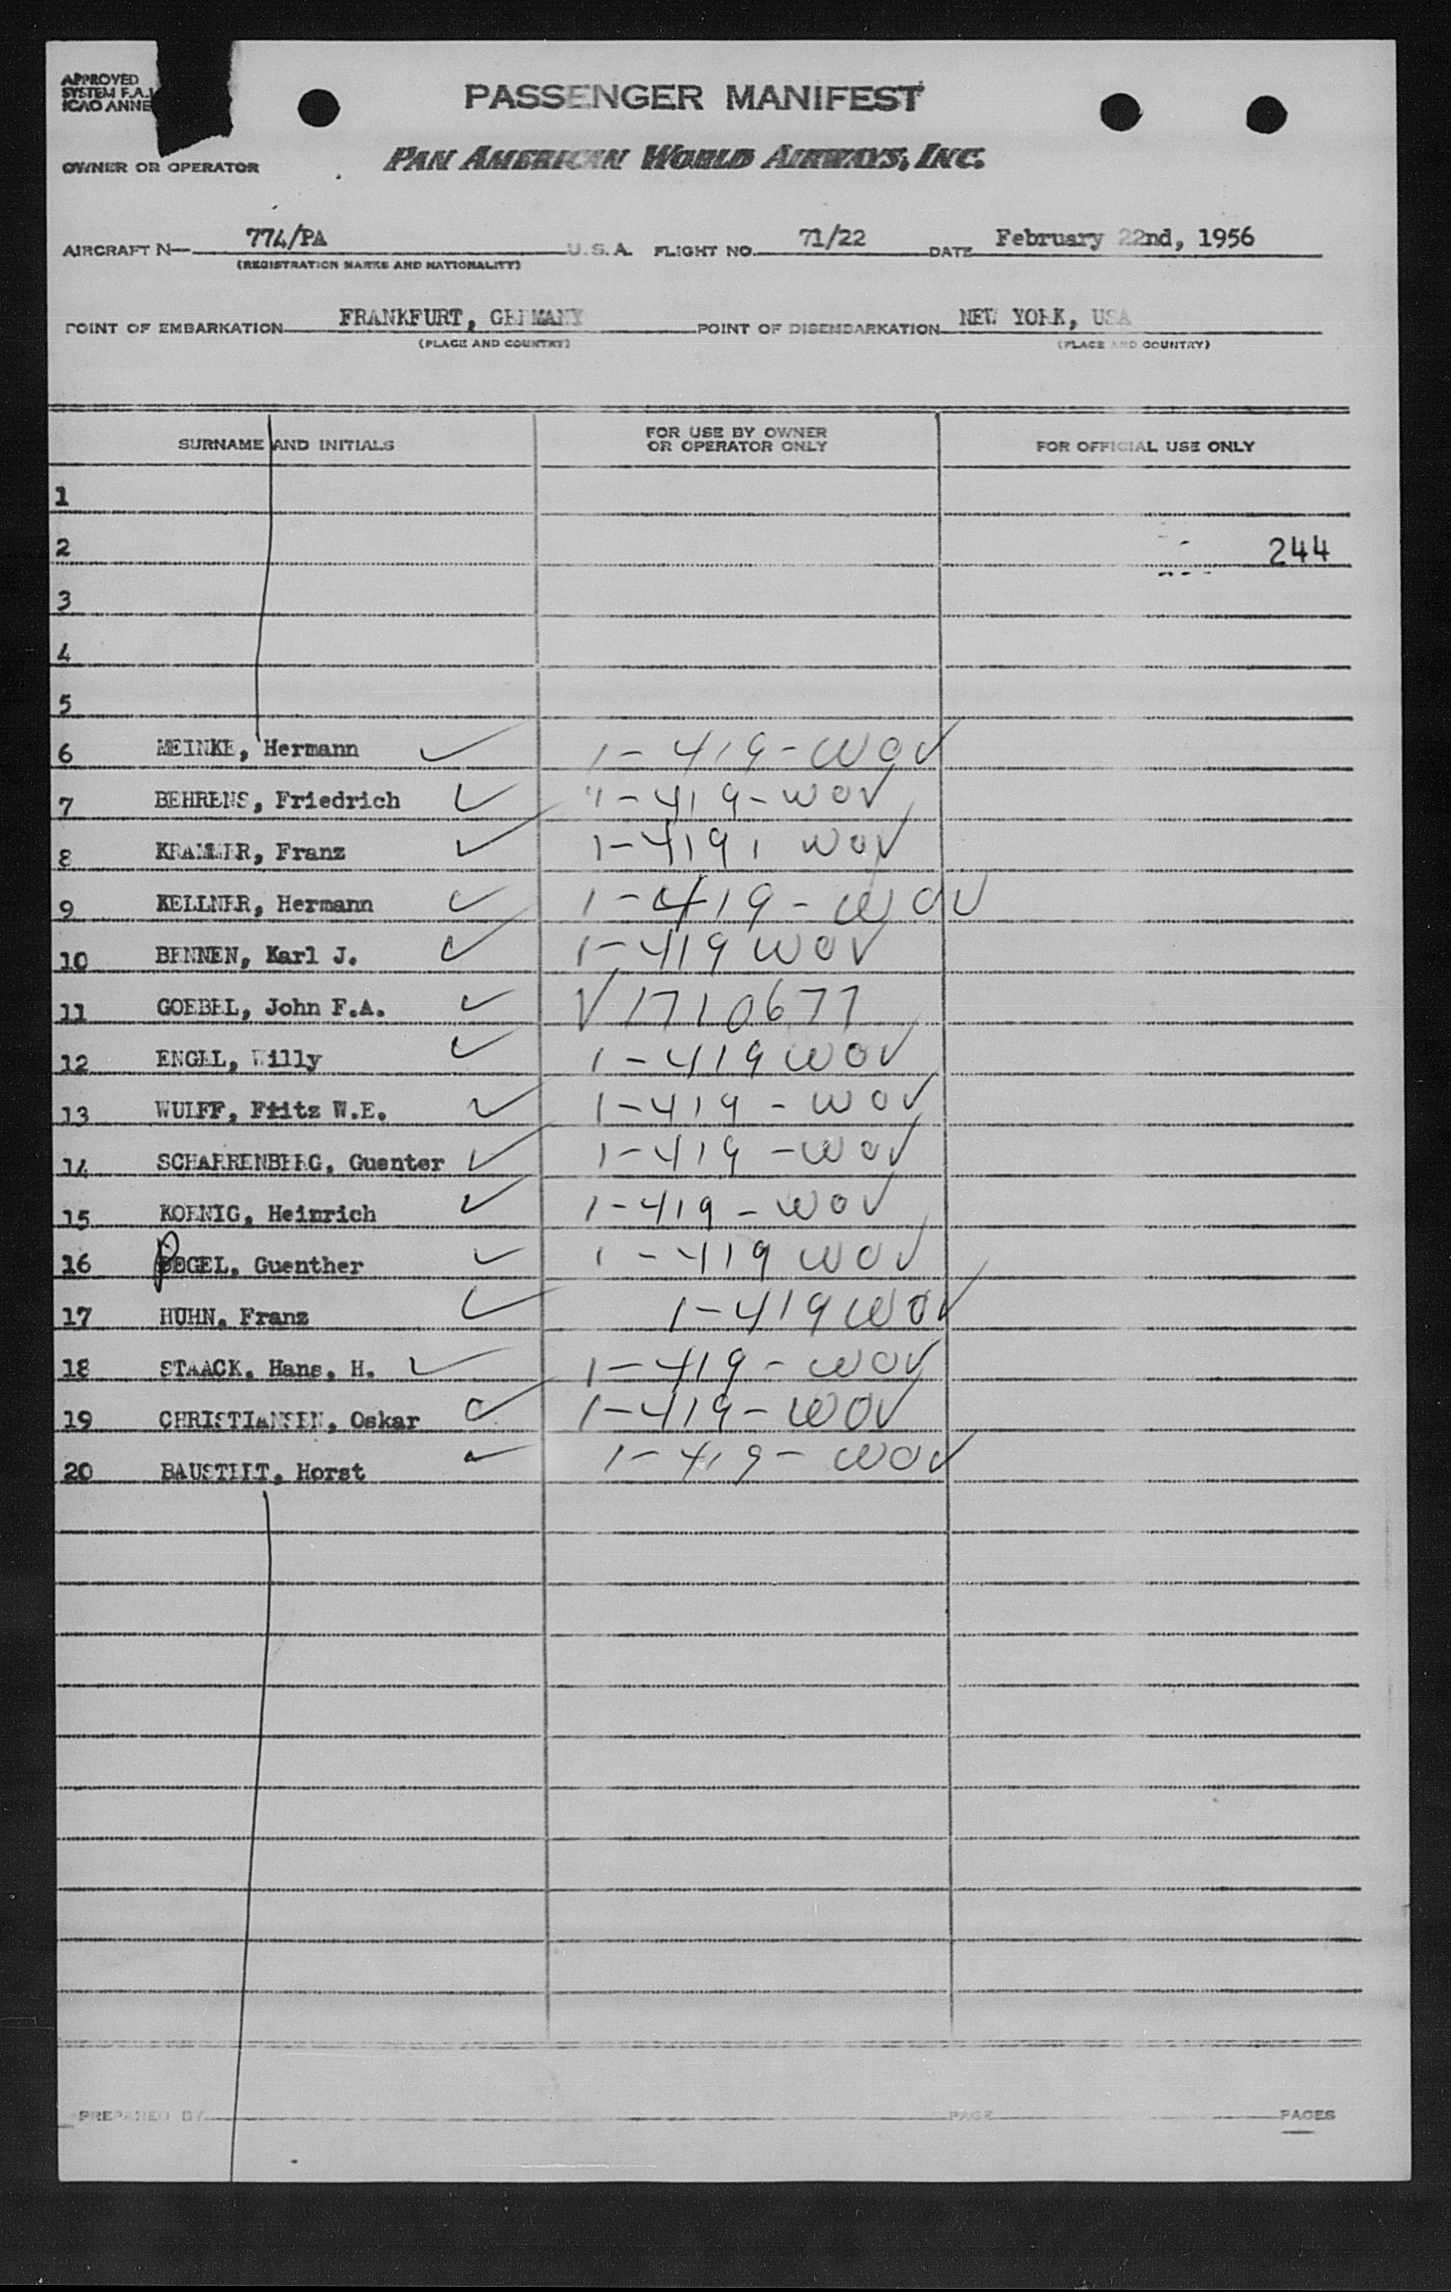 APPROVED
SYSTEM F.A.L
ICAO ANNE
PASSENGER MANIFEST
OWNER OR OPERATOR
PAN AMERICAN WORLD AIRWAYS, INC.
AIRCRAFT N— 774/PA U.S.A. FLIGHT NO. 71/22 DATE February 22nd, 1956
(REGISTRATION MARKS AND NATIONALITY)
POINT OF EMBARKATION FRANKFURT, GERMANY POINT OF DISEMBARKATION NEW YORK, USA
(PLACE AND COUNTRY) (PLACE AND COUNTRY)
SURNAME AND INITIALS FOR USE BY OWNER OR OPERATOR ONLY FOR OFFICIAL USE ONLY
1
2 244
3
4
5
6 MEINKE, Hermann ✓ 1-419-WOV
7 BEHRENS, Friedrich ✓ 1-419-WOV
8 KRAMMER, Franz ✓ 1-419, WOV
9 KELLNER, Hermann ✓ 1-419-WOV
10 BENNEN, Karl J. ✓ 1-419 WOV
11 GOEBEL, John F.A. ✓ V1710677
12 ENGEL, Willy ✓ 1-419 WOV
13 WULFF, Fritz W.E. ✓ 1-419-WOV
14 SCHARRENBERG, Guenter ✓ 1-419-WOV
15 KOENIG, Heinrich ✓ 1-419-WOV
16 PEGEL, Guenther ✓ 1-419 WOV
17 HUHN, Franz ✓ 1-419 WOV
18 STAACK, Hans, H. ✓ 1-419-WOV
19 CHRISTIANSEN, Oskar ✓ 1-419-WOV
20 Horst ✓ 1-419-WOV
PREPARED BY PAGE PAGES